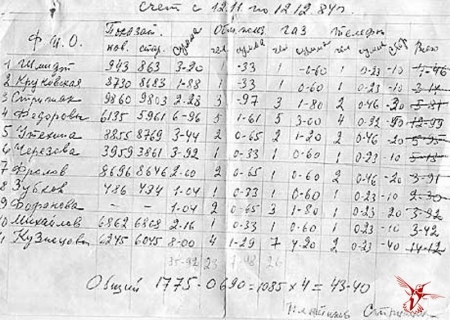 Счет с 12.11 по 12.12.84г.
Показат. Общ. польз газ Телефон
Ф.И.О. нов. стар. сумма чел сумма чел сумма чел сумма сбор Всего
1 Шмидт 943 863 3-20 1 -33 1 -0-60 1 0-23 -10
2 Круковская 8730 8683 1-88 1 -33 1 0-60 1 0-23 -10 3-14
3 9860 9803 2-28 3 -97 3 1-80 2 0-46 -20
4 Федорова 6135 5961 6-96 5 1-61 5 3-00 4
5 Утехина 8855 8769 3-44 2 0-65 2 1-20 2 0-46 -20
6 Черезова 3959 3861 3-92 1 0-33 1 0-60 1 0-23 -10
7 Фролов 8696 8646 2-00 2 0-65 1 0-60 2 0-46 -20
8 Зубков 1-04 1 0-33 1 0-60 1 0-23 -10 2-30
9 - - 1-04 2 0-65 3 1-80 1 0-23 -20 3-92
10 Михайлов 6862 6808 2-16 1 0-33 1 0-60 1 0-23 -10 3-42
11 Кузнецова 6245 6045 8-00 4 1-29 7 4-20 2 0-23 -40 14-12
Общий 1775-0690=1085×4=43-40